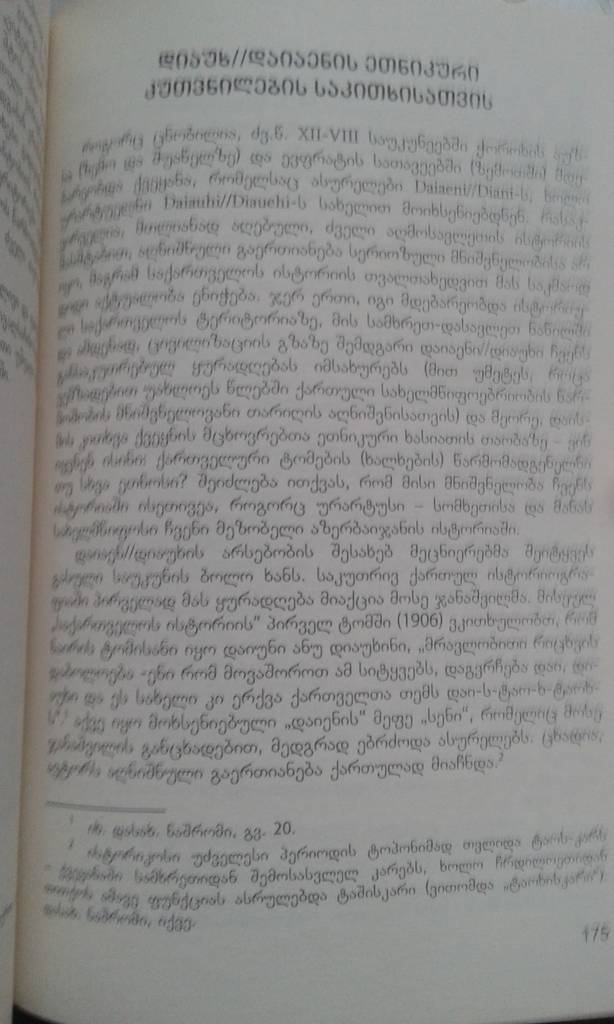 ᲓᲘᲐᲣᲮ//ᲓᲐᲘᲐᲔᲜᲘᲡ ᲔᲗᲜᲘᲙᲣᲠᲘ
ᲙᲣᲗᲕᲜᲘᲚᲔᲑᲘᲡ ᲡᲐᲙᲘᲗᲮᲘᲡᲐᲗᲕᲘᲡ
როგორც ცნობილია, ძვ.წ. XII-VIII საუკუნეებში ჭოროხის
(ზემო და შუაწელზე) და ევფრატის სათავეებში (ზემოთში)
ქვეყანა, რომელსაც ასურელები Daiaeni//Diani-ს, ხოლო
ურარტუელნი Daiauhi//Diauehi-ს სახელით მოიხსენიებდნენ.
მთლიანად აღებული, ძველი აღმოსავლეთის ისტორიის
აღნიშნული გაერთიანება სერიოზული მნიშვნელობისა არ
იყო, მაგრამ საქართველოს ისტორიის თვალთახედვით მას საკმაოდ
დიდი აქტუალობა ენიჭება. ჯერ ერთი, იგი მდებარეობდა
საქართველოს ტერიტორიაზე, მის სამხრეთ-დასავლეთ ნაწილში
და ამდენად, ცივილიზაციის გზაზე შემდგარი დაიაენი//დიაუხი ჩვენს
განსაკუთრებულ ყურადღებას იმსახურებს (მით უმეტეს, როცა
უახლოეს წლებში ქართული სახელმწიფოებრიობის
მნიშვნელოვანი თარიღის აღნიშვნისათვის) და მეორე,
ქვეყნის მცხოვრებთა ეთნიკური ხასიათის თაობაზე – ვინ
იყვნენ ისინი: ქართველური ტომების (ხალხების) წარმომადგენელნი
თუ სხვა ეთნოსი? შეიძლება ითქვას, რომ მისი მნიშვნელობა ჩვენს
ისტორიაში ისეთივეა, როგორც ურარტუსი – სომხეთისა და მანას
სახელმწიფოსი ჩვენი მეზობელი აზერბაიჯანის ისტორიაში.
დაიაენ//დიაუხის არსებობის შესახებ მეცნიერებმა შეიტყვეს
გასული საუკუნის ბოლო ხანს. საკუთრივ ქართულ ისტორიოგრა-
ფიაში პირველად მას ყურადღება მიაქცია მოსე ჯანაშვილმა. მისეულ
„საქართველოს ისტორიის“ პირველ ტომში (1906) ვკითხულობთ, რომ
ტომისანი იყო დაიუნი ანუ დიაუხინი, „მრავლობითი რიცხვის
დაბოლოება -ენი რომ მოვაშოროთ ამ სიტყვებს, დაგვრჩება დაი,
და ეს სახელი კი ერქვა ქართველთა თემს დაი-ს-ტაო-ხ-ტაოხ-
ს“.¹ აქვე იყო მოხსენიებული „დაიენის“ მეფე „სენი“, რომელიც მოსე
ჯანაშვილის განცხადებით, მედგრად ებრძოდა ასურელებს. ცხადია,
ავტორს აღნიშნული გაერთიანება ქართულად მიაჩნდა.²
¹ იხ. დასახ. ნაშრომი, გვ. 20.
² ისტორიკოსი უძველესი პერიოდის ტოპონიმად თვლიდა
სამხრეთიდან შემოსასვლელ კარებს, ხოლო ჩრდილოეთიდან
ამავე ფუნქციას ასრულებდა ტაშისკარი (ვითომდა „ტაოხისკარი“).
დასახ. ნაშრომი, იქვე.
175